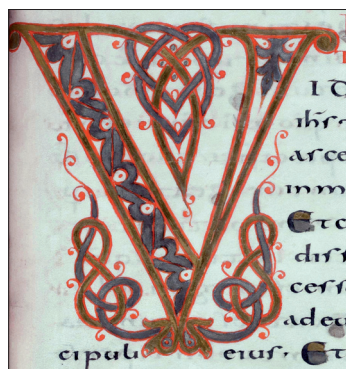 VID
ihs
asce
inm
Etc
diss
cess
adeu
cipuli eius. Et